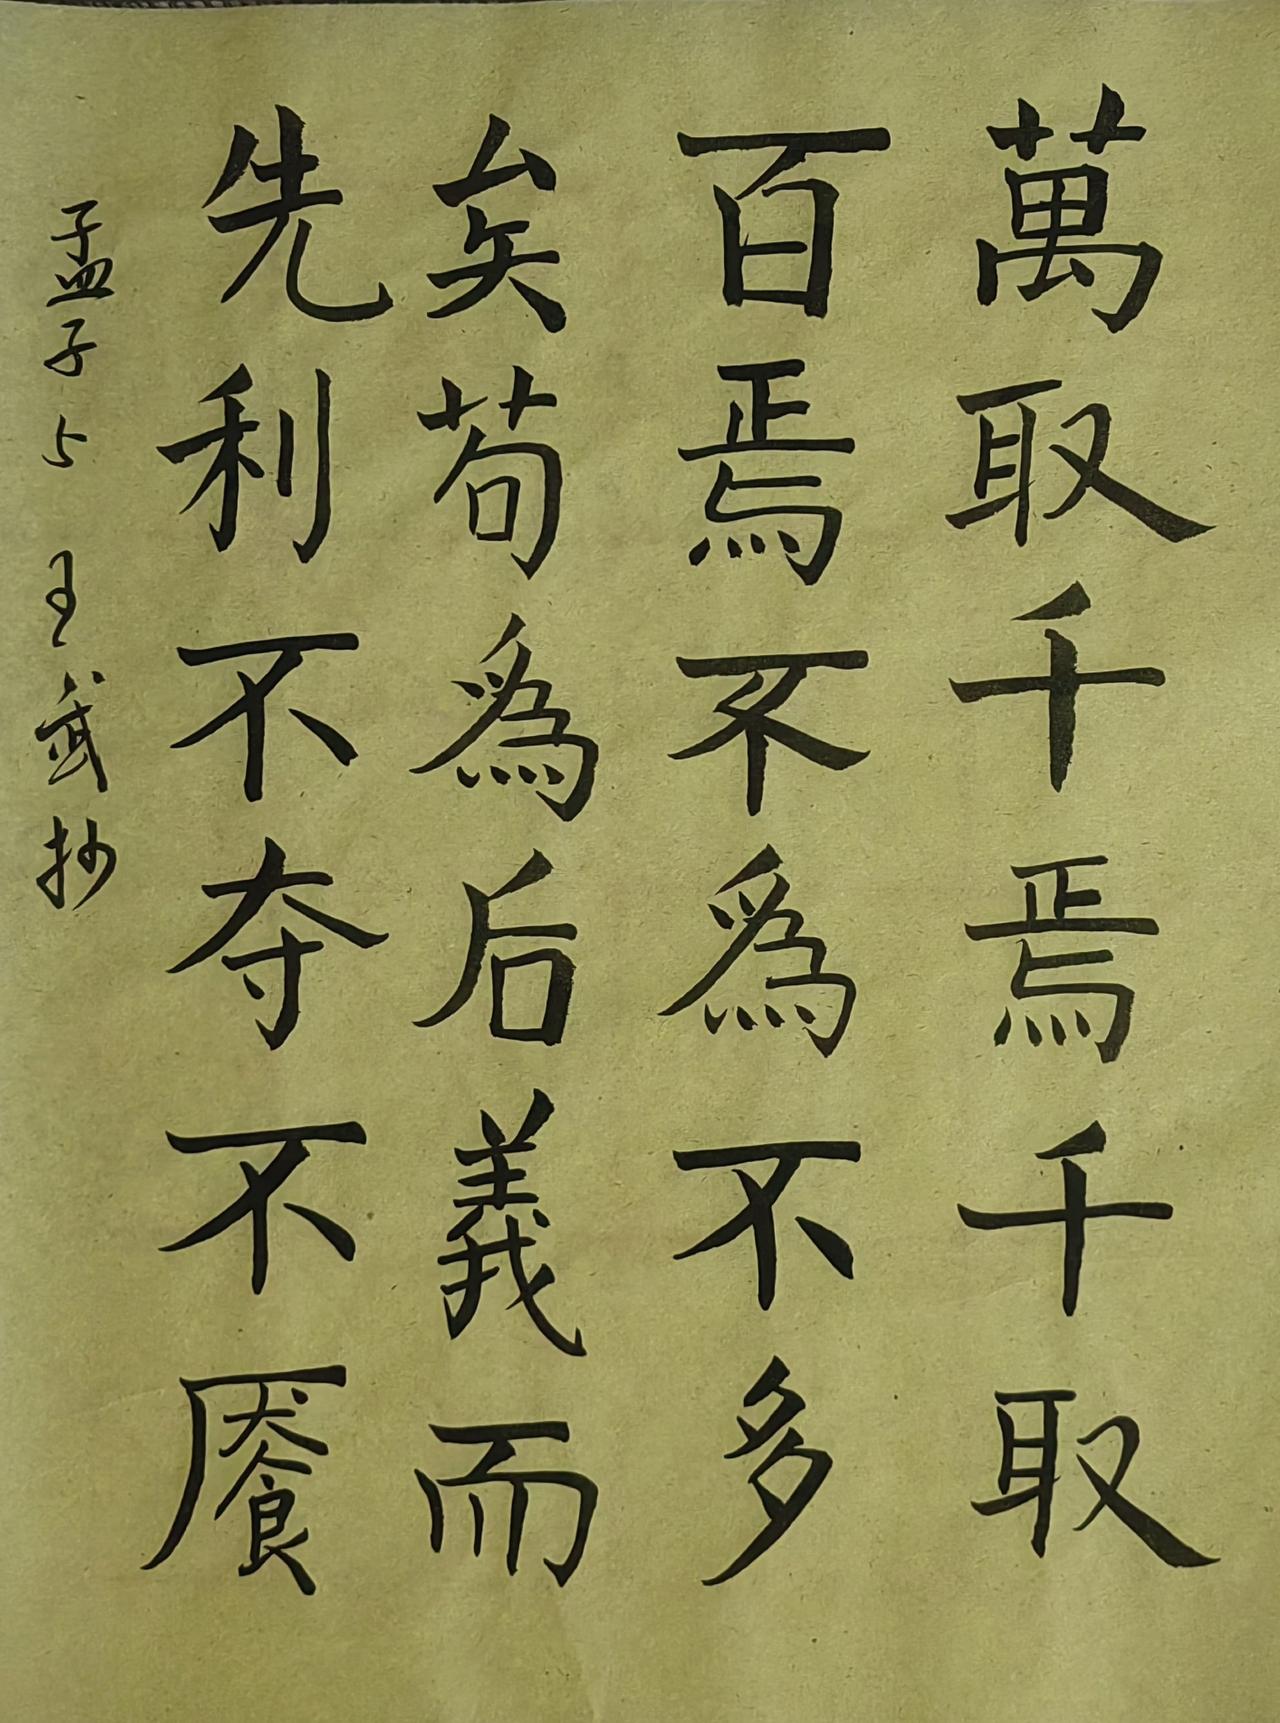 萬取千焉千取
百焉不為不多
矣苟為后義而
先利不夺不餍
孟子5 王武抄